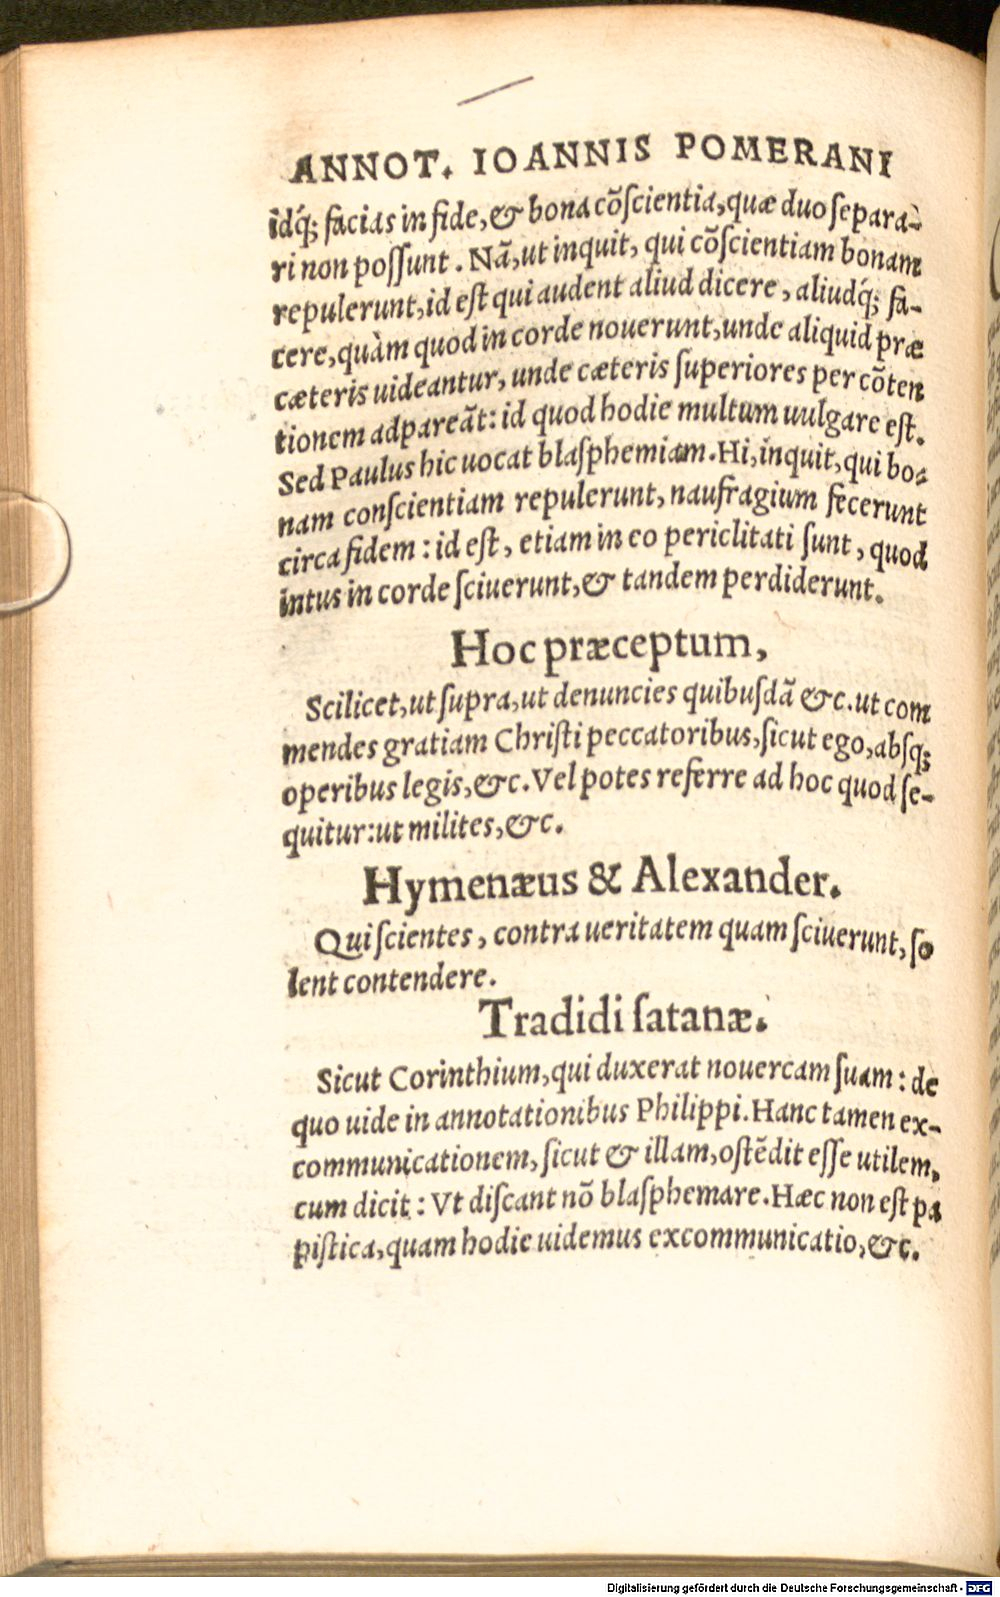 ANNOT. IOANNIS POMERANI
idq́; facias in fide, & bona cõſcientia, quæ duo ſepara-
ri non poſſunt. Nã, ut inquit, qui cõſcientiam bonam
repulerunt, id eſt qui audent aliud dicere, aliudq́; fa-
cere, quàm quod in corde nouerunt, unde aliquid præ
cæteris uideantur, unde cæteris ſuperiores per cõten
tionem adpareãt: id quod hodie multum uulgare eſt.
Sed Paulus hic uocat blaſphemiam. Hi, inquit, qui bo-
nam conſcientiam repulerunt, naufragium fecerunt
circa fidem: id eſt, etiam in eo periclitati ſunt, quod
intus in corde ſciuerunt, & tandem perdiderunt.
Hoc præceptum,
Scilicet, ut ſupra, ut denuncies quibuſdã &c. ut com
mendes gratiam Chriſti peccatoribus, ſicut ego, abſq;
operibus legis, &c. Vel potes referre ad hoc quod ſe-
quitur: ut milites, &c.
Hymenæus & Alexander.
Qui ſcientes, contra ueritatem quam ſciuerunt, ſo
lent contendere.
Tradidi ſatanæ.
Sicut Corinthium, qui duxerat nouercam ſuam: de
quo uide in annotationibus Philippi. Hanc tamen ex-
communicationem, ſicut & illam, oſtẽdit eſſe utilem,
cum dicit: Vt diſcant nõ blaſphemare. Hæc non eſt pa
piſtica, quam hodie uidemus excommunicatio, &c.
Digitalisierung gefördert durch die Deutsche Forschungsgemeinschaft - DFG